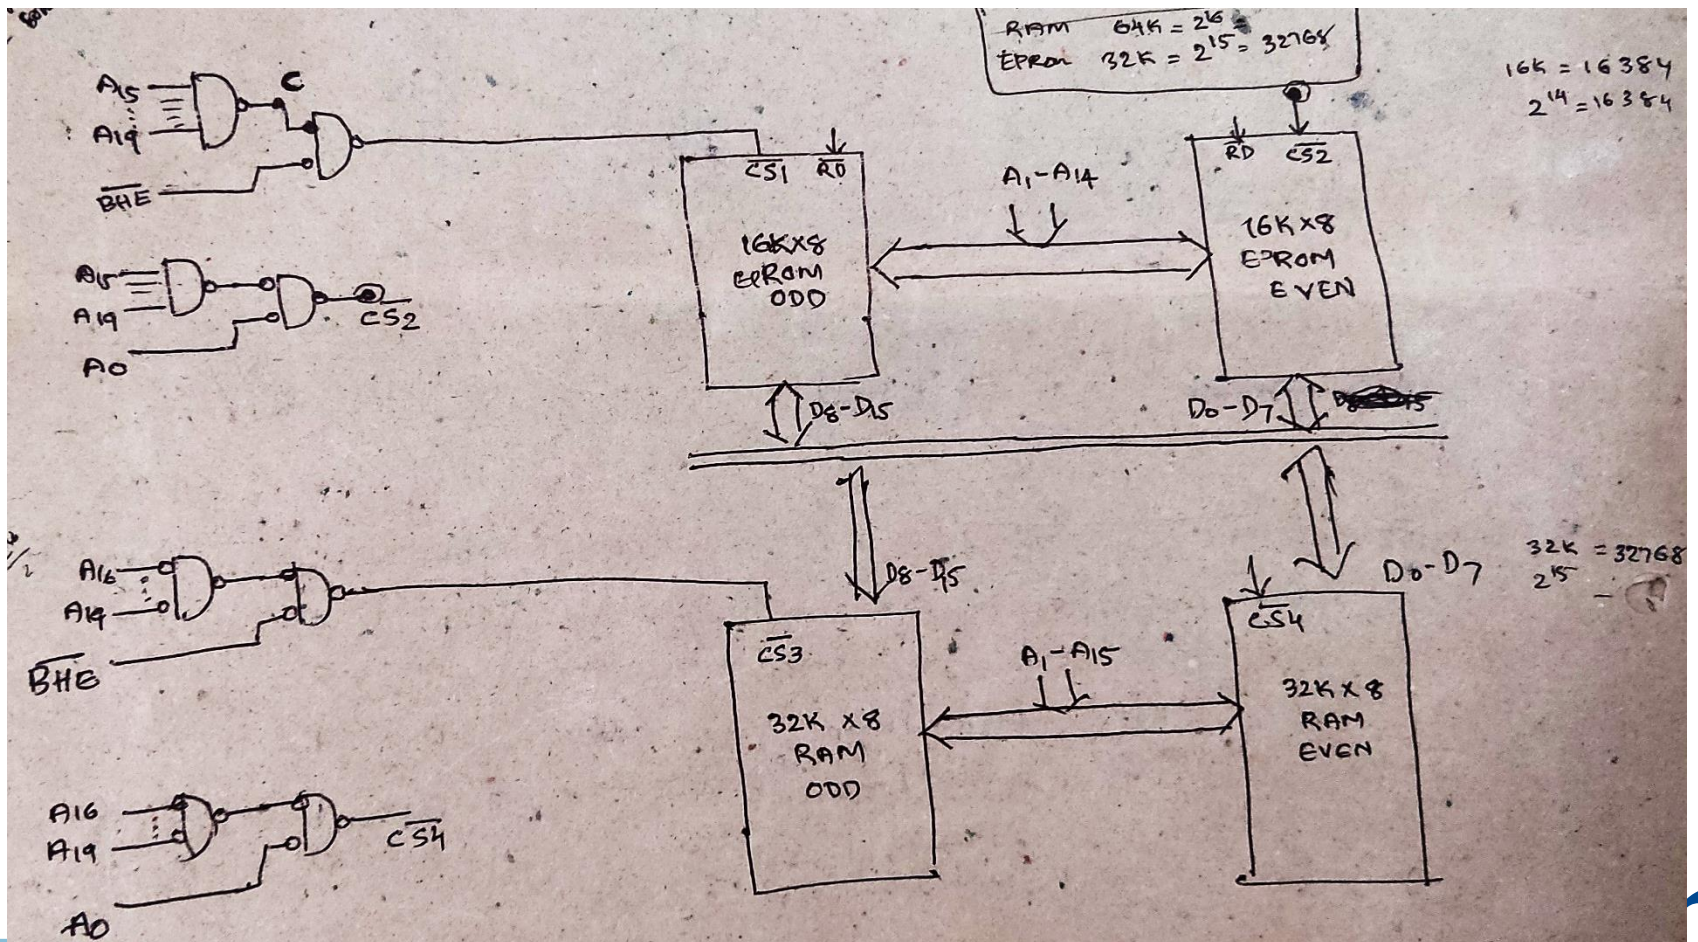 RAM 64K = 2^16 =
EPROM 32K = 2^15 = 32768
16K = 16384
2^14 = 16384
A15
A19
C
BHE
CS1 RD
16K×8
EPROM
ODD
A1-A14
RD CS2
16K×8
EPROM
EVEN
A15
A19
CS2
A0
D8-D15
D0-D7
A16
A19
BHE
D8-D15
D0-D7
32K = 32768
2^15
CS3
32K ×8
RAM
ODD
A1-A15
CS4
32K×8
RAM
EVEN
A16
A19
CS4
A0